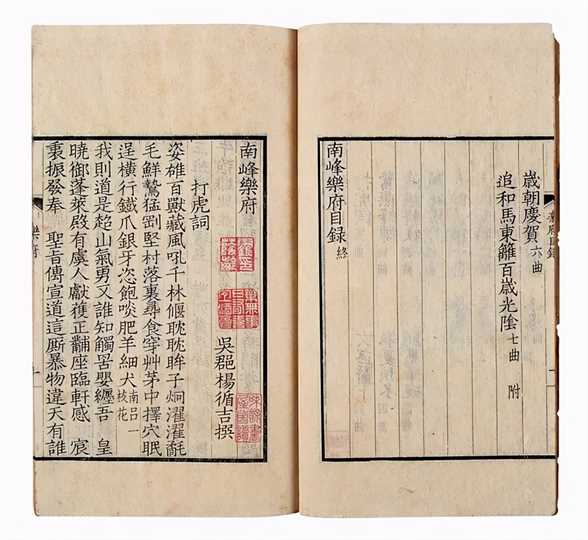 歲朝慶賀 六曲
追和馬東籬百歲光陰 七曲 附
南峰樂府目録 終
南峰樂府
吳郡楊循吉撰
打虎詞
姿雄百獸藏風吼千林偃耽耽眸子炯濯濯毳
毛鮮鷙猛剛堅村落裏尋食穿艸茅中擇穴眠
逞橫行鐵爪銀牙恣飽啖肥羊細犬 南吕一枝花
我則道是超山氣勇又誰知觸罟嬰纏吾 皇
曉御蓬萊殿有虞人獻獲正黼座臨軒感 宸
裏振發奉 聖旨傳宣道這厮暴物違天有誰
樂府